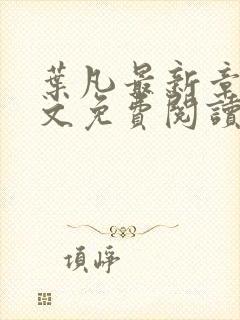 葉凡最新章
文免費閱讀
項崢